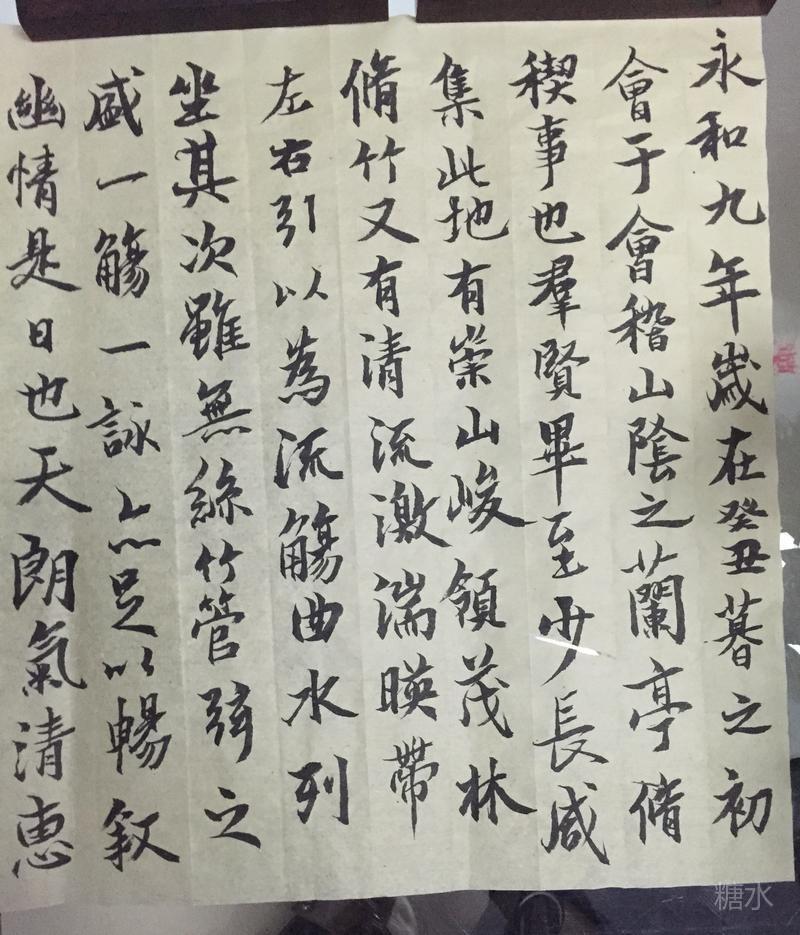 永和九年歲在癸丑暮之初
會于會稽山陰之蘭亭脩
稧事也羣賢畢至少長咸
集此地有崇山峻領茂林
脩竹又有清流激湍暎帶
左右引以為流觴曲水列
坐其次雖無絲竹管弦之
盛一觴一詠亦足以暢敘
幽情是日也天朗氣清惠
糖水